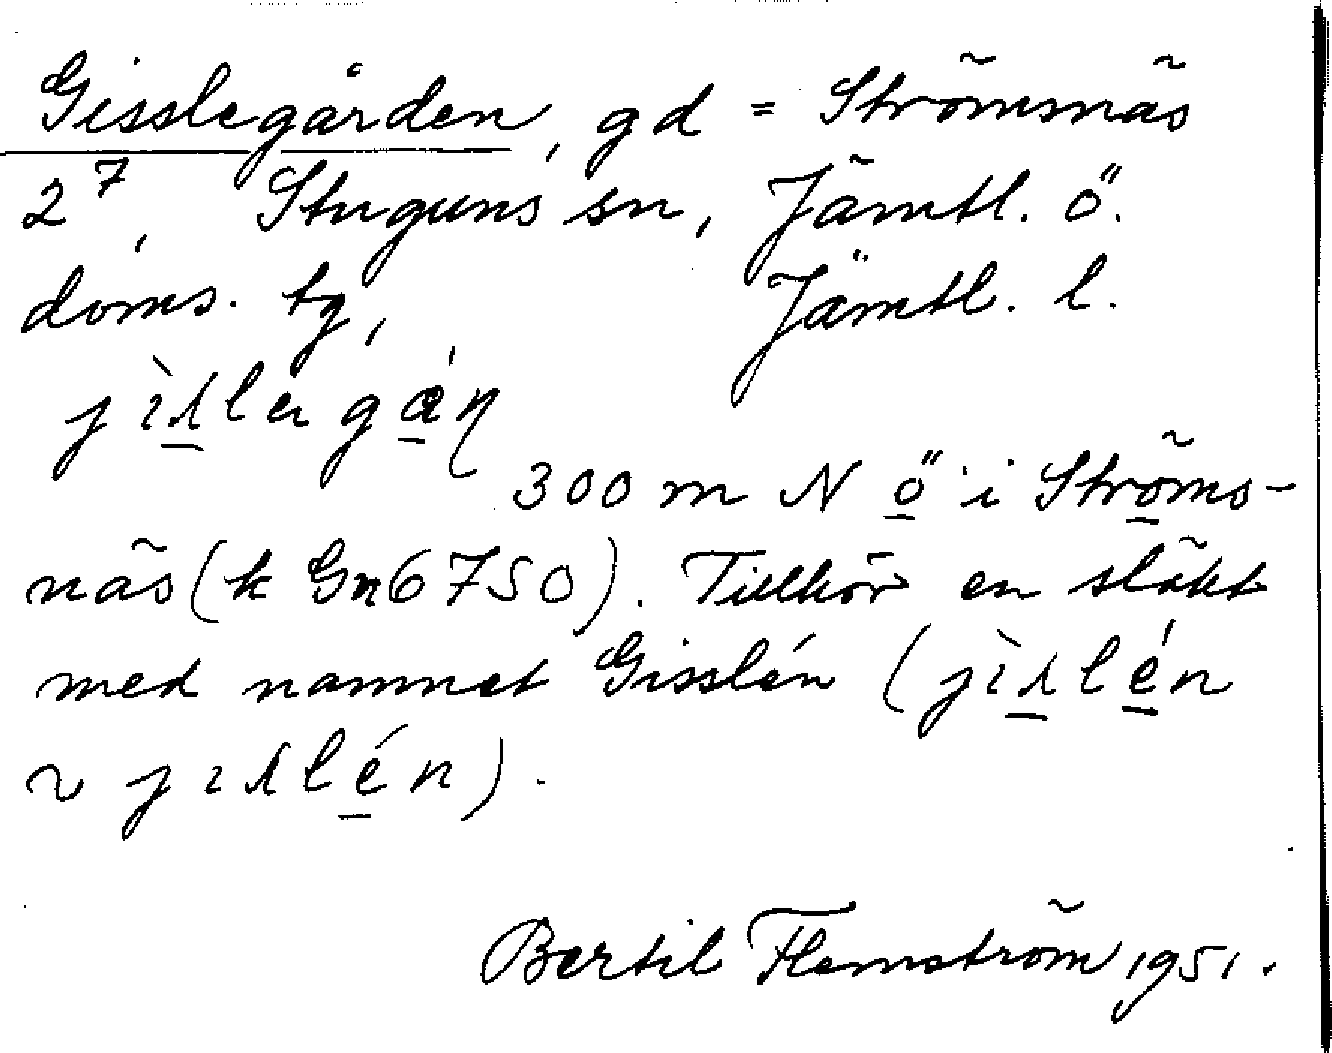 Gisslegården, gd = Strömnäs
2⁷, Stuguns sn, Jämtl. ö.
doms. tg, Jämtl. l.
300 m N ö i Ströms-
näs (k Gn6750). Tillhör en släkt
med namnet Gisslén (jìslén
~ jislén).
Bertil Flemström 1951.